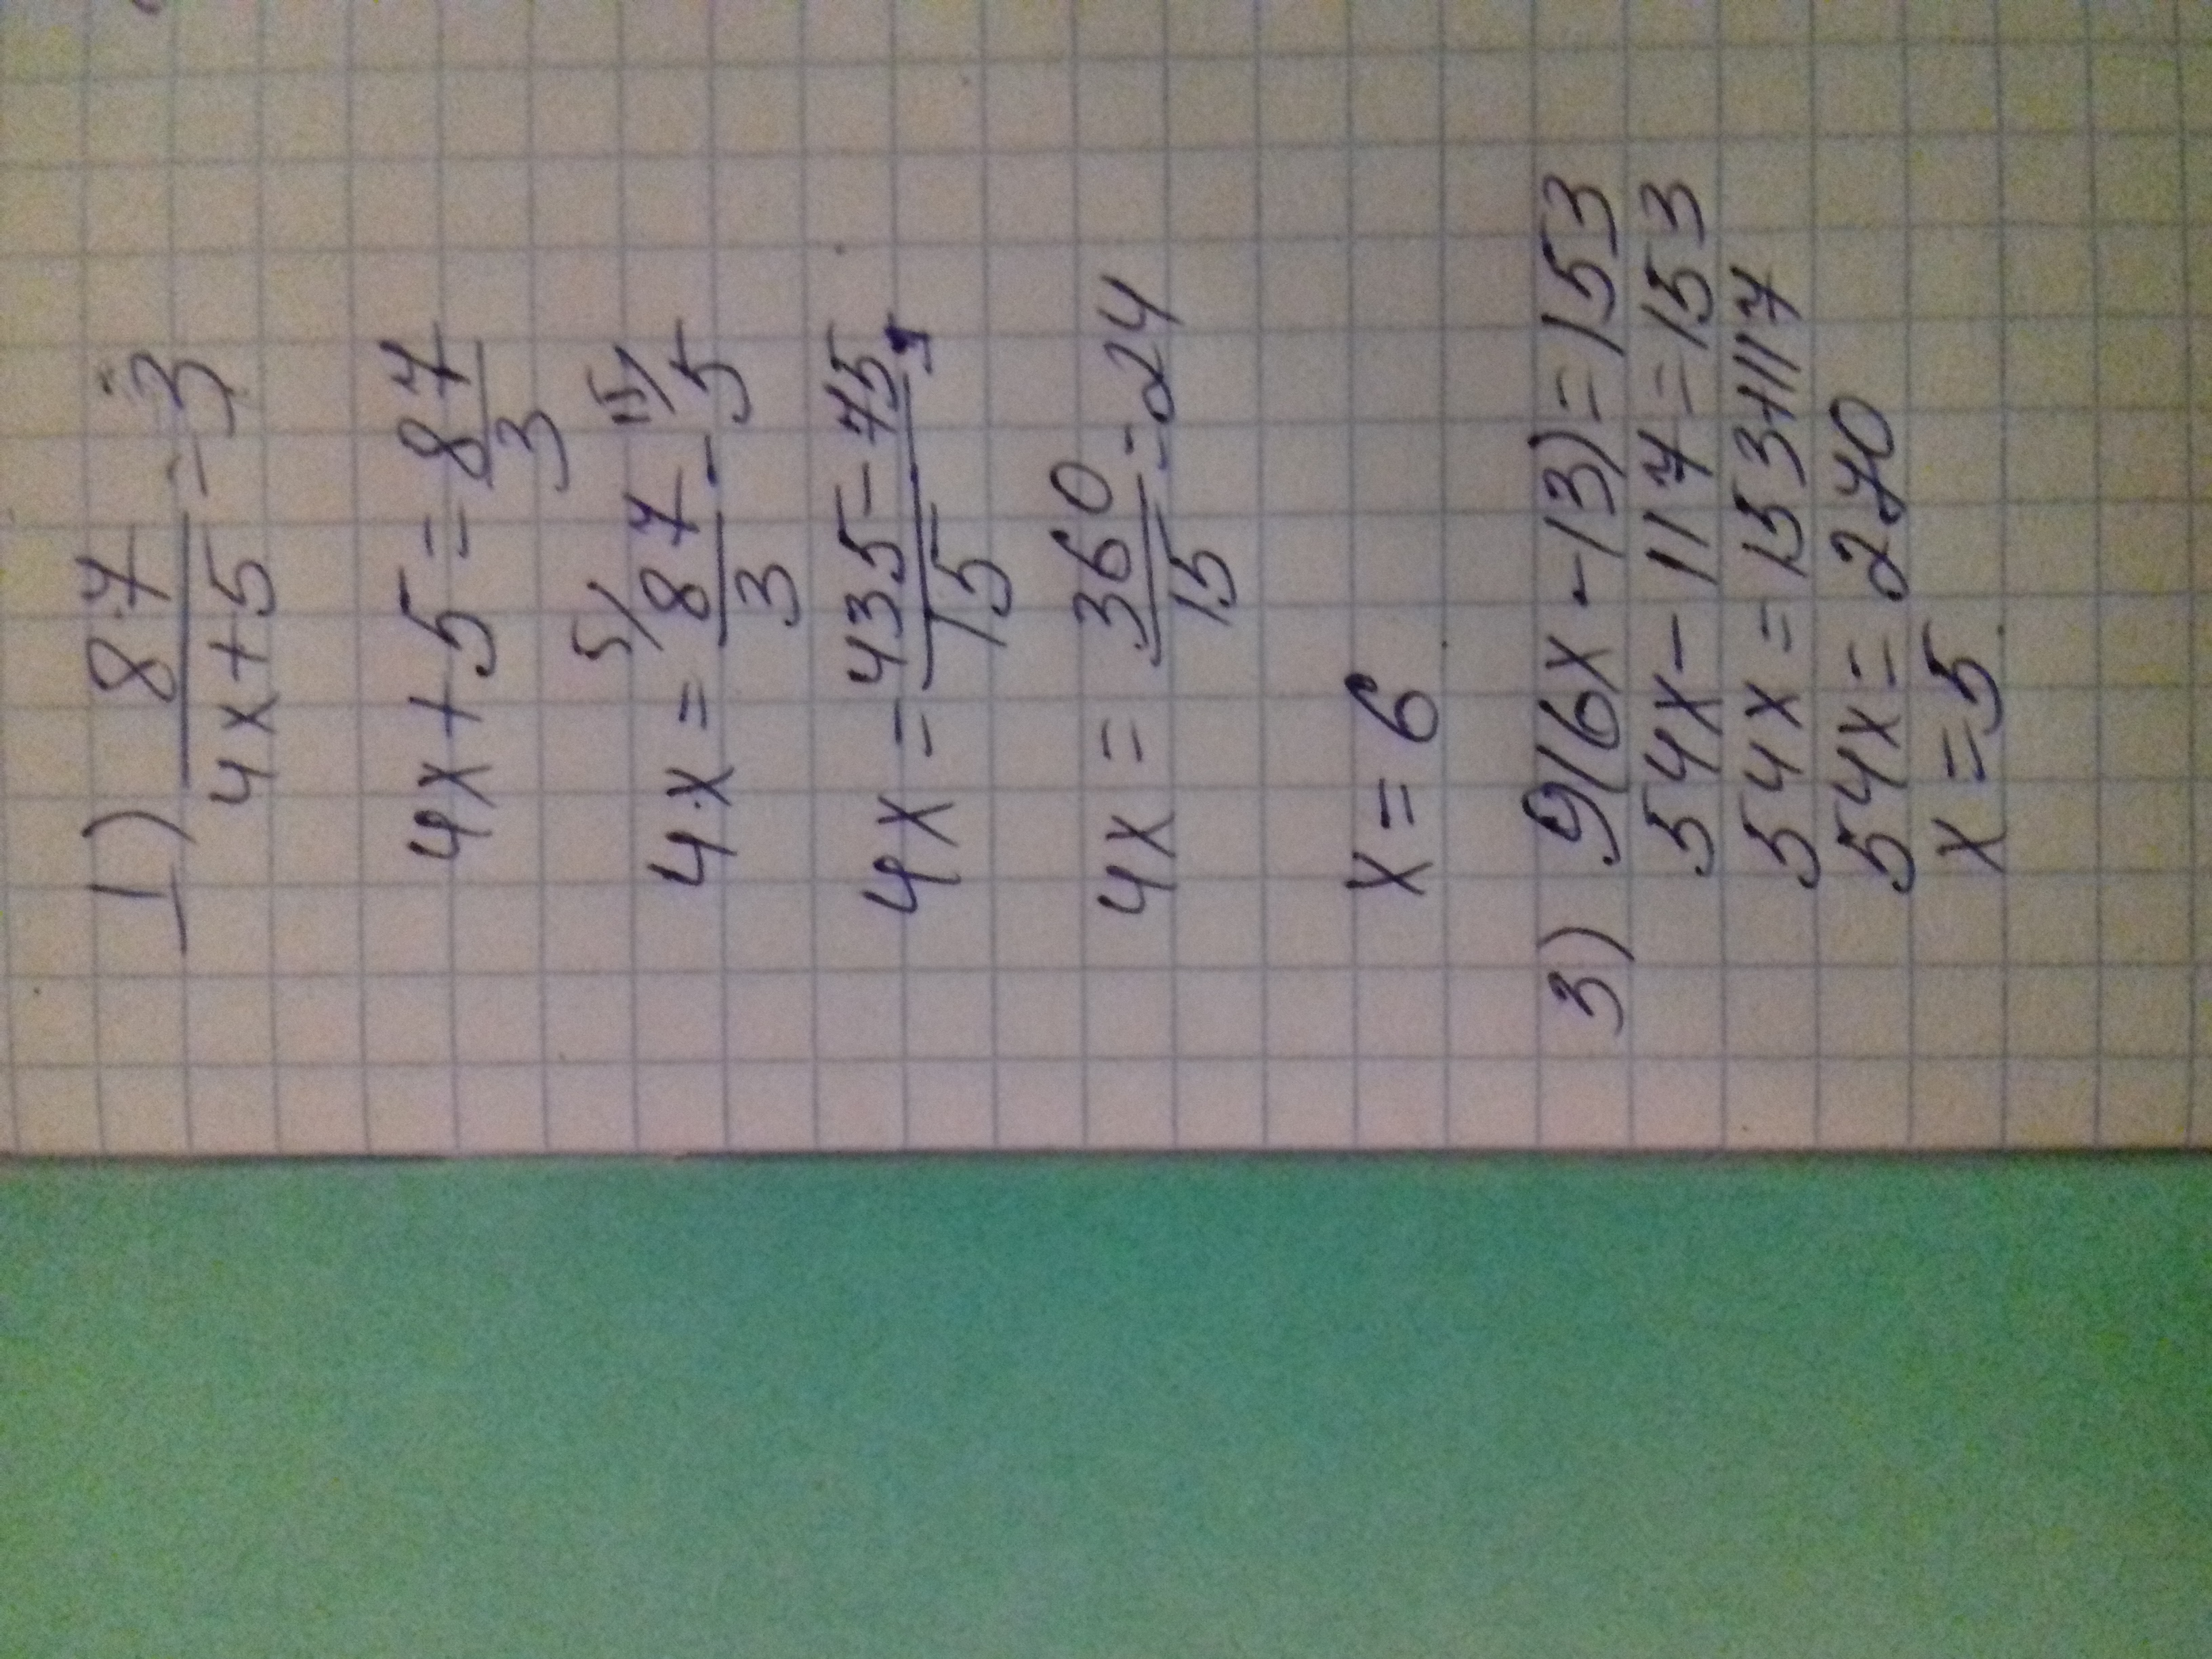 1) 87/(4x+5) = 3
4x+5 = 87/3
4x = 5/ 87/3 - 15/ 5
4x = (435-75)/15
4x = 360/15 = 24
x = 6
3) 9(6x-13)=153
54x-117=153
54x=153+117
54x=270
x=5